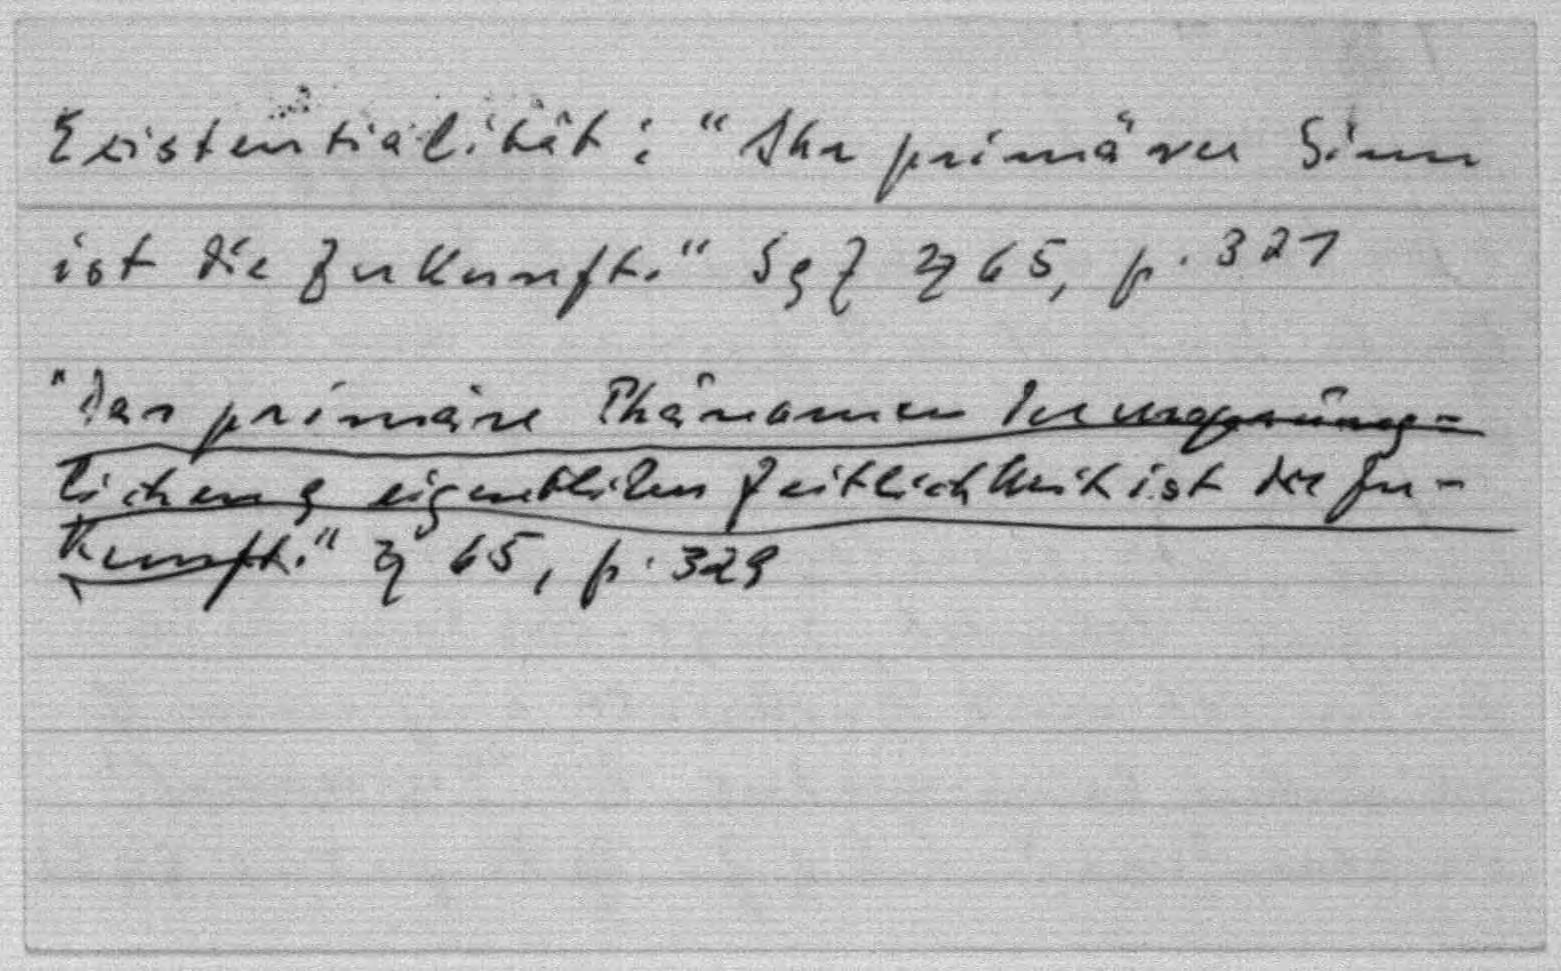 Existentialität: "Ihr primärer Sinn
ist die Zukunft." S & Z § 65, p. 327
"Das primäre Phänomen der ursprüng-
lichen & eigentlichen Zeitlichkeit ist die Zu-
kunft." § 65, p. 329